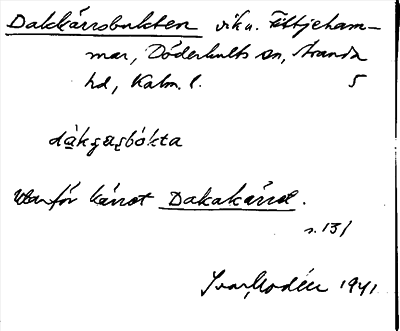 Dakkärrsbukten vik u. Fittjeham-
mar, Döderhults sn, Stranda
hd, Kalm. l. 5
dákʂaʂbókta
Utanför kärret Dakakärret.
s. 131
Ivar Modéer 1941